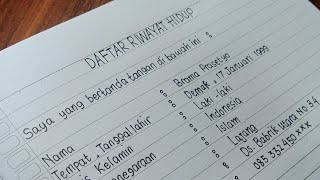 DAFTAR RIWAYAT HIDUP
Saya yang bertanda tangan di bawah ini :
Nama : Brama Prasetyo
Tempat, Tanggal lahir : Demak, 17 Januari 1999
Kelamin : Laki-laki
: Indonesia
: Islam
: Lajung
Ds. Batik Utara No. 34
085 332 457 xxx